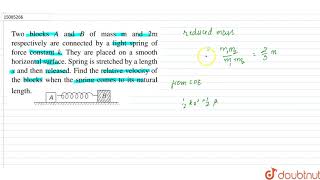 15085266
Two blocks A and B of mass m and 2m
respectively are connected by a light spring of
force constant k. They are placed on a smooth
horizontal surface. Spring is stretched by a length
x and then released. Find the relative velocity of
the blocks when the spring comes to its natural
length.
A B
reduced mass
m₁m₂ / m₁ m₂ = 2/3 m
from COE
1/2 kx² = 1/2
doubtnut